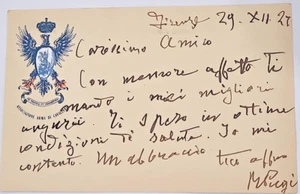 Firenze 29.XII.27
Carissimo Amico
Con memore affetto ti
mando i miei migliori
auguri. Ti spero in ottime
condizioni di salute. Io mi
contento. Un abbraccio
tuo affmo